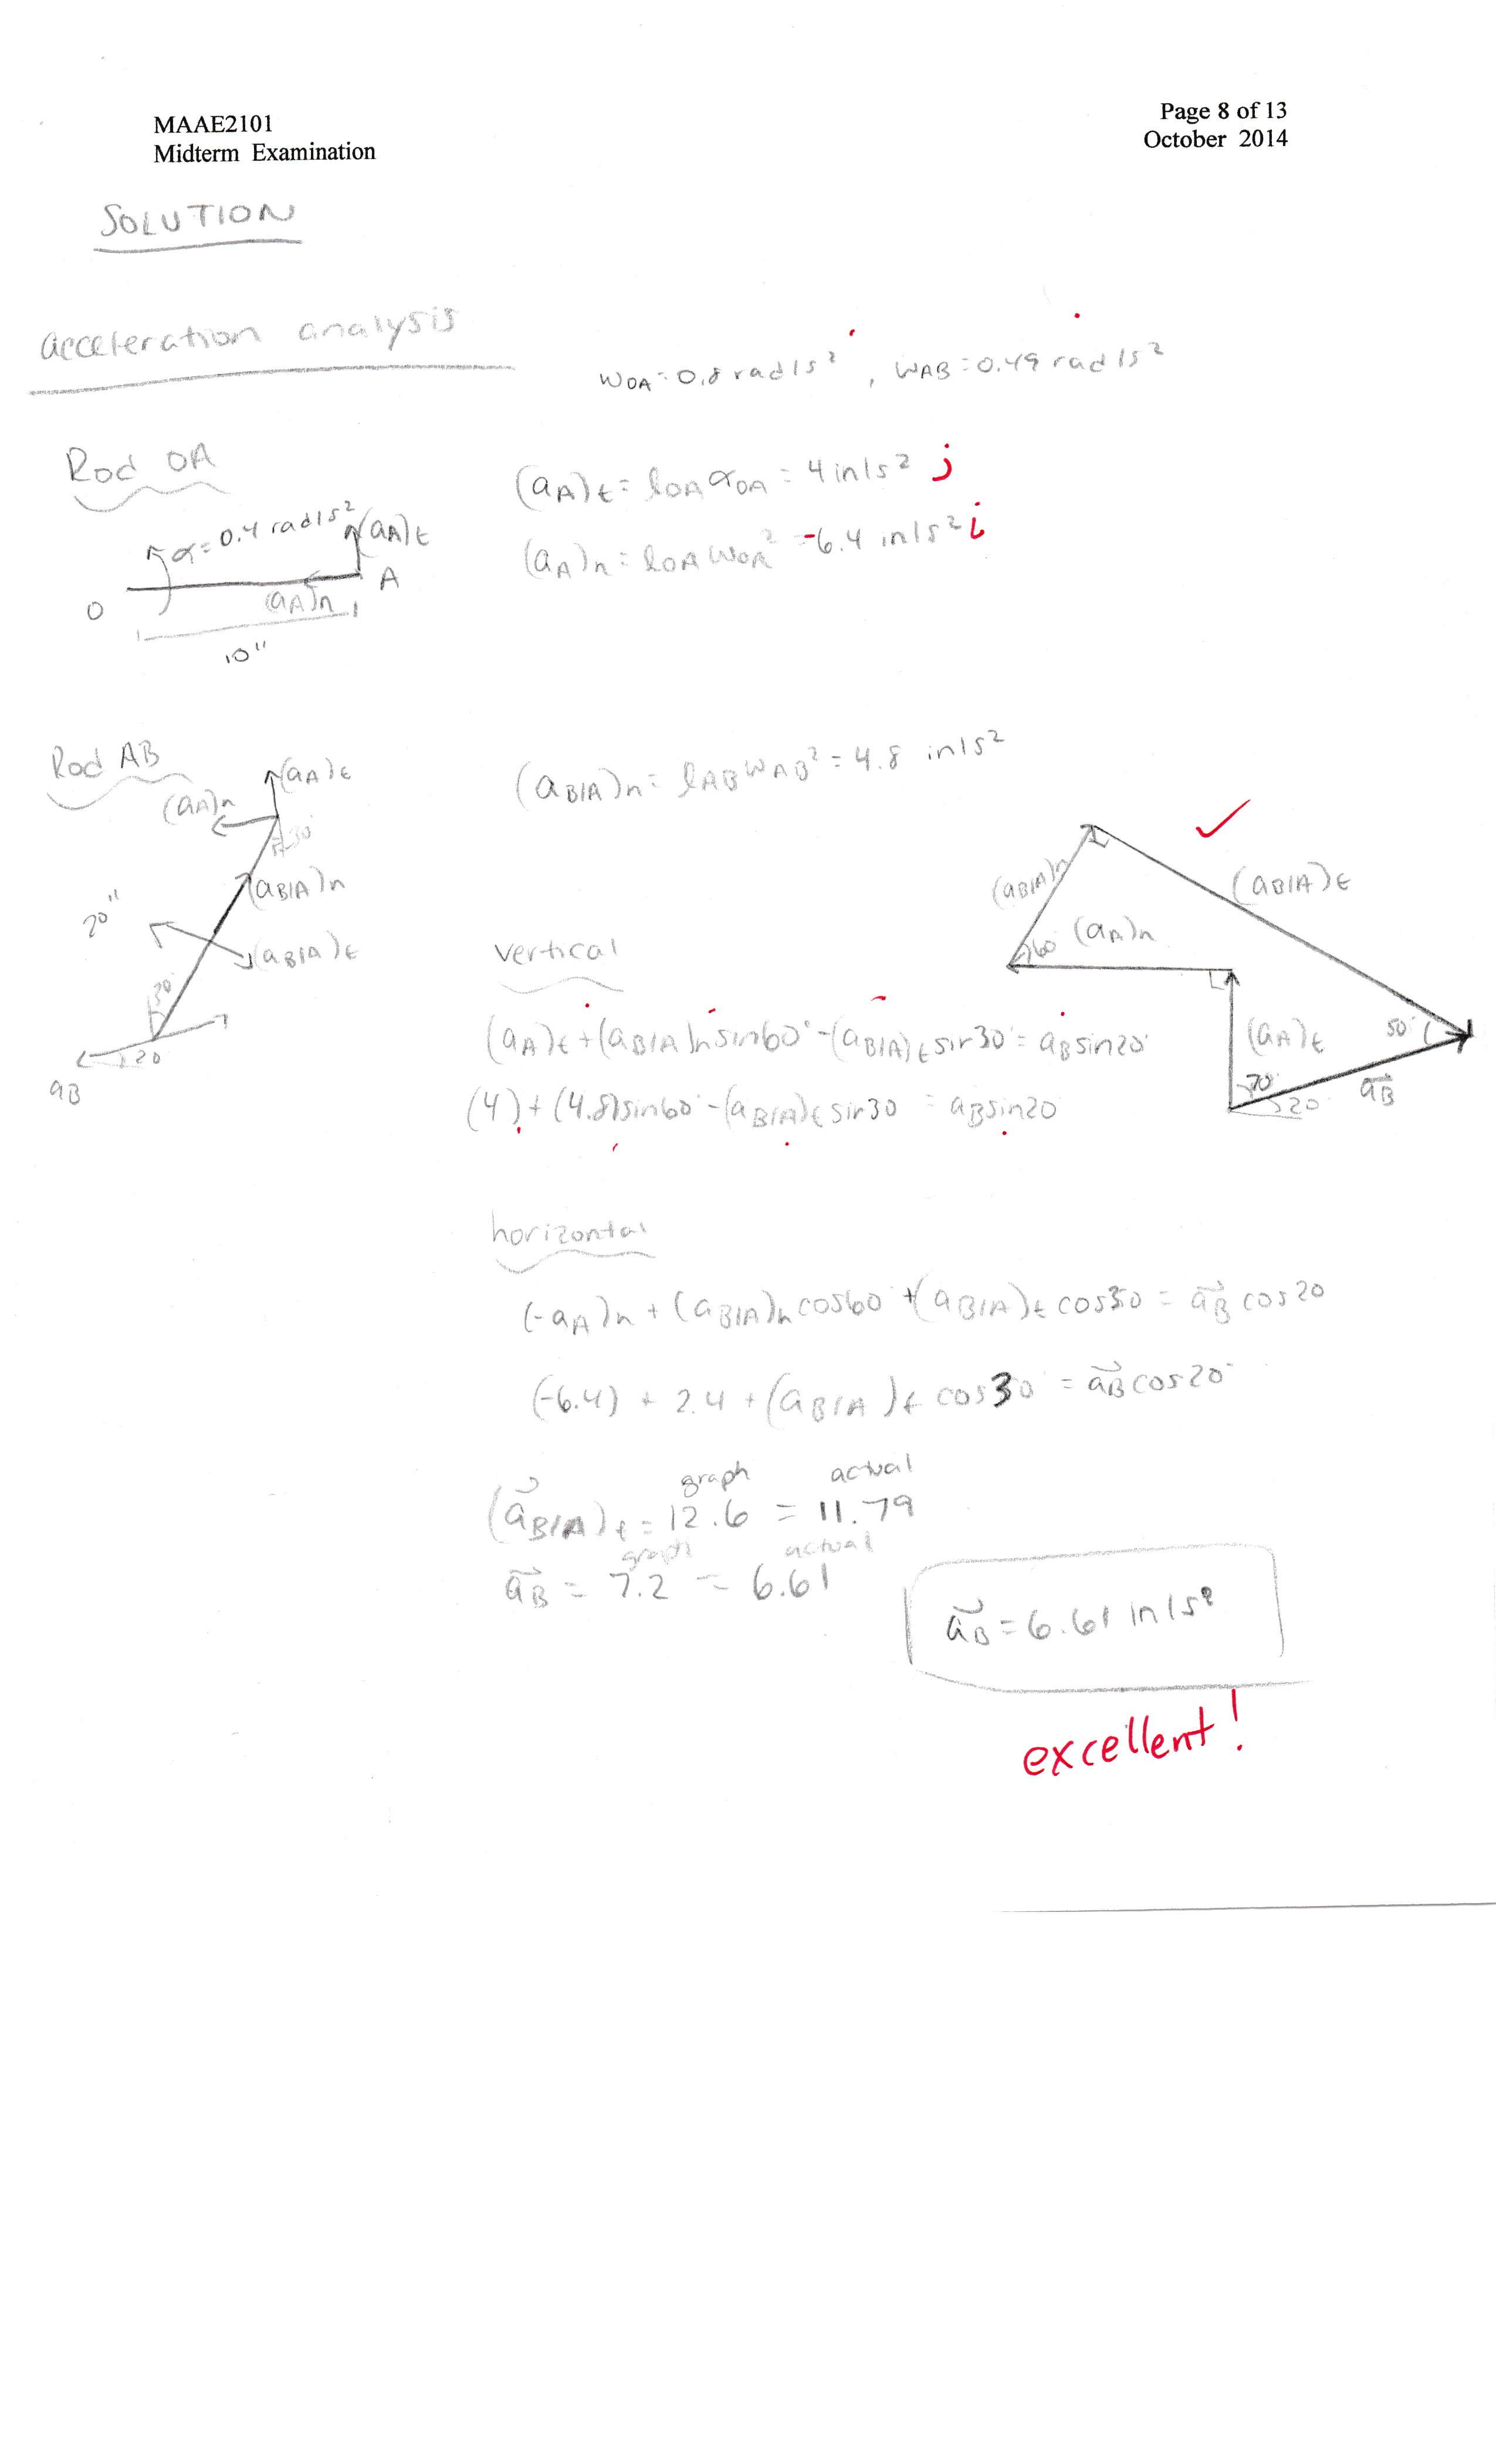 MAAE2101
Midterm Examination
Page 8 of 13
October 2014
SOLUTION
acceleration analysis
ωOA = 0.8 rad/s², ωAB = 0.49 rad/s²
Rod OA
α = 0.4 rad/s²
(aA)t
(aA)n
O
A
10"
(aA)t = lOA αOA = 4 in/s² j
(aA)n = lOA ωOA² -6.4 in/s² i
Rod AB
(aA)t
(aA)n
30°
(aB/A)n
20"
(aB/A)t
30
20
aB
(aB/A)n = lAB ωAB² = 4.8 in/s²
(aB/A)n
(aB/A)t
60°
(aA)n
(aA)t
50°
70°
20
aB
vertical
(aA)t + (aB/A)n sin60° - (aB/A)t sin30° = aB sin20°
(4) + (4.8)sin60° - (aB/A)t sin30 = aB sin20
horizontal
(-aA)n + (aB/A)n cos60 + (aB/A)t cos30 = aB cos20
(-6.4) + 2.4 + (aB/A)t cos30° = aB cos20°
graph actual
(aB/A)t = 12.6 = 11.79
graph actual
aB = 7.2 = 6.61
aB = 6.61 in/s²
excellent!